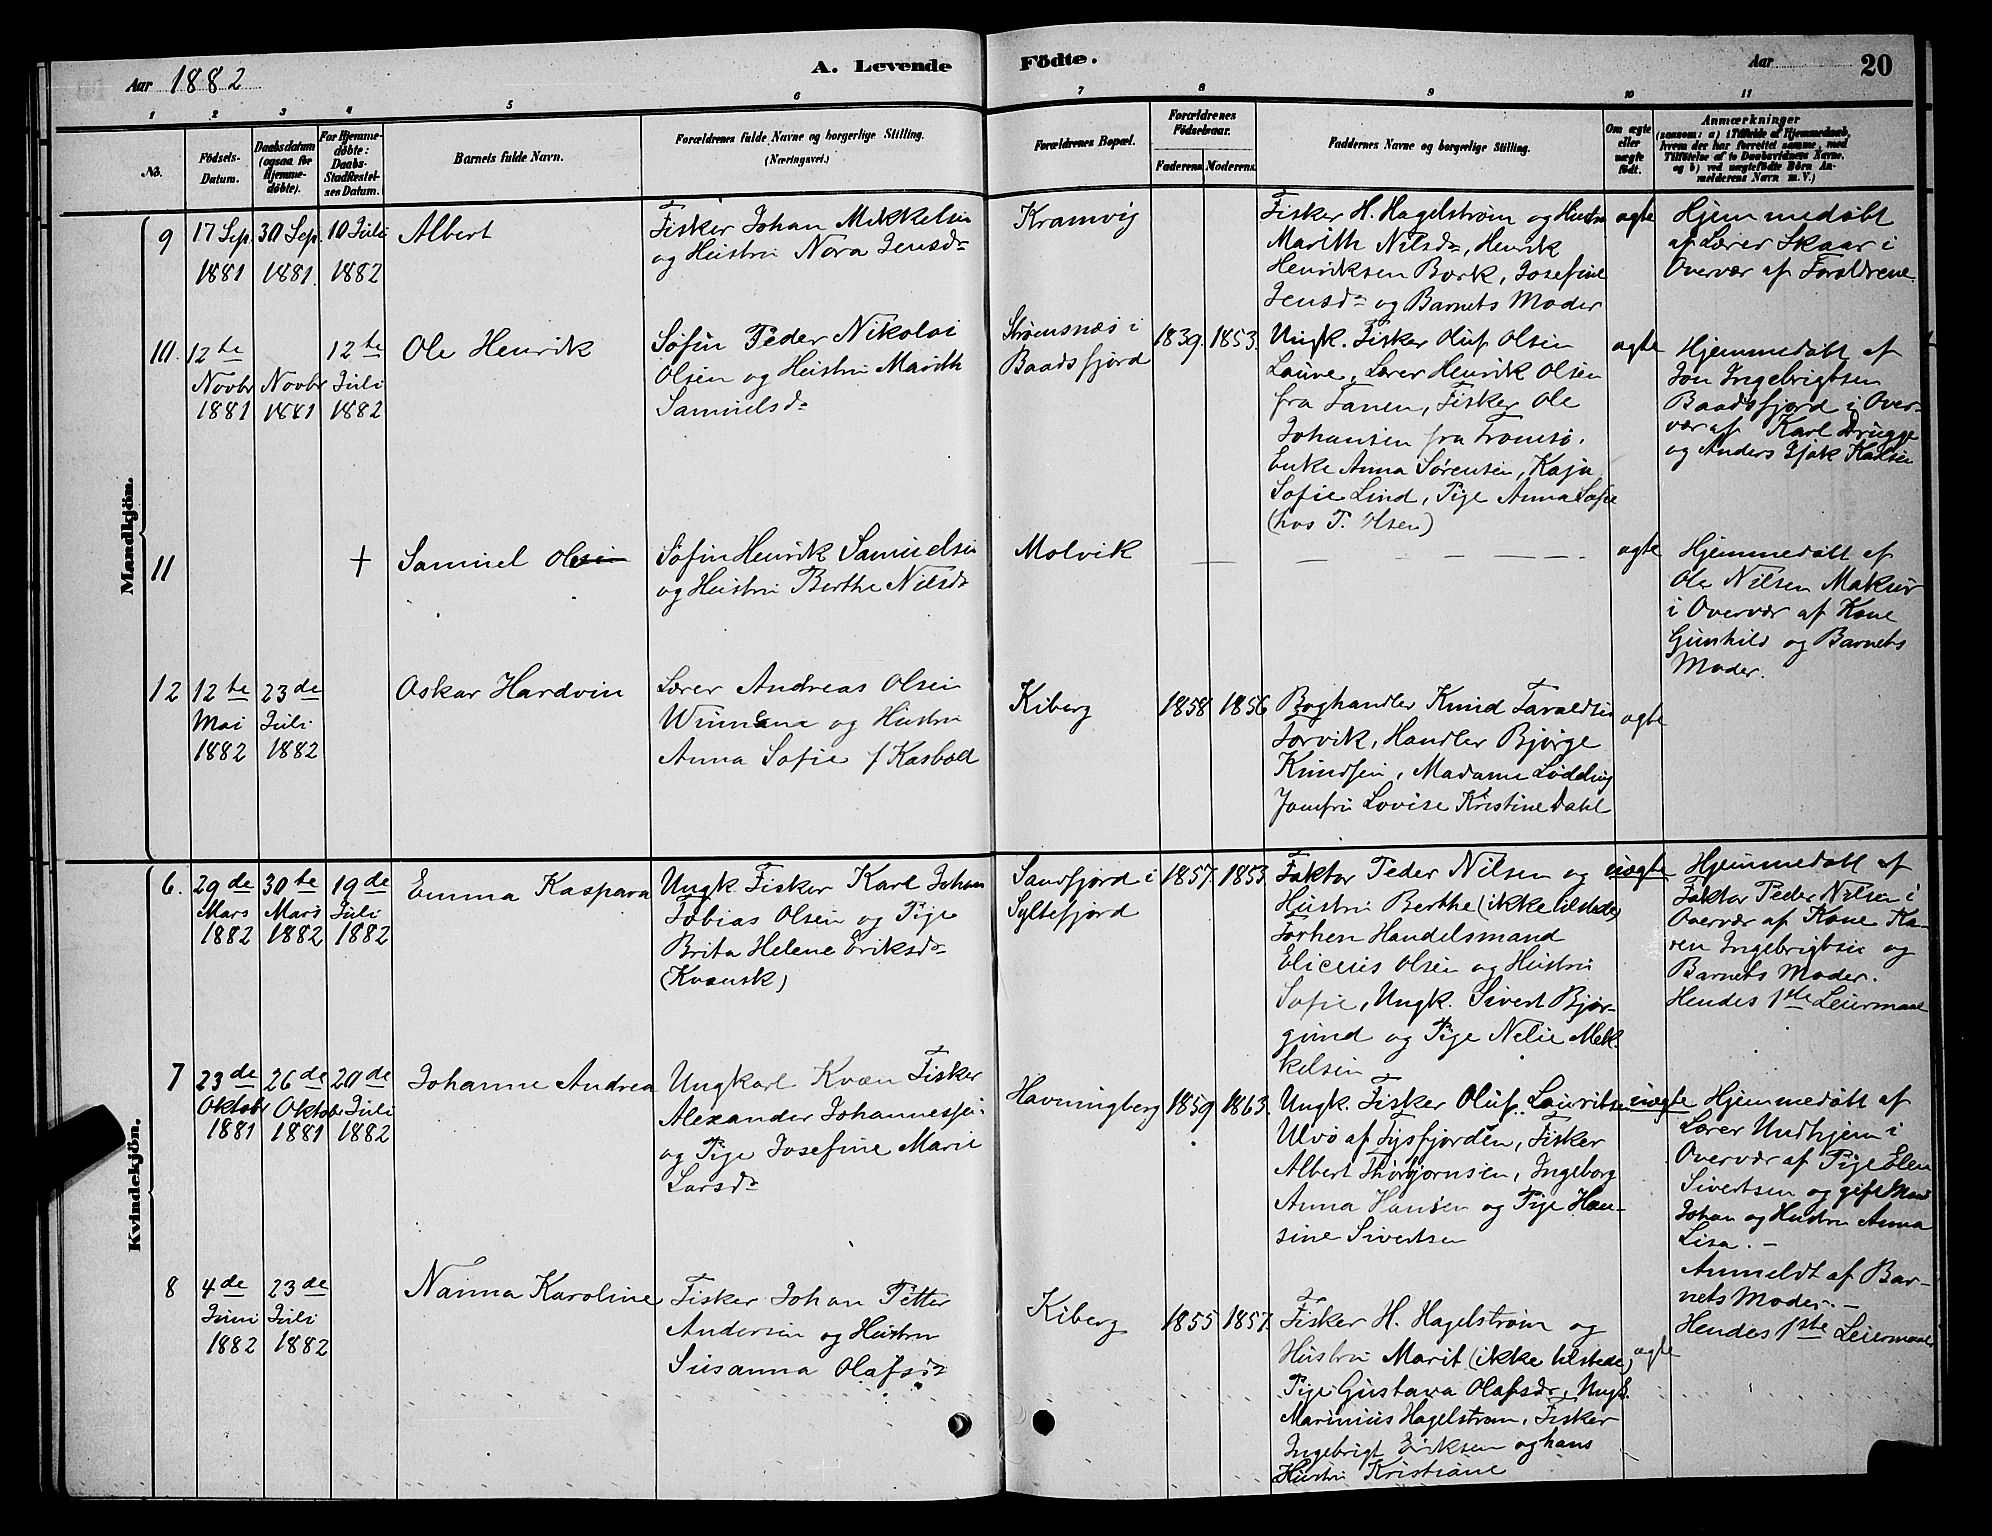 Aar 1882
A. Levende Födte.
Aar
20
1 2 3 4 5 6 7 8 9 10 11
No.
Födsels-Datum.
Daabsdatum (ogsaa for Hjemmedöbte).
For Hjemmedöbte: Daabs-Stadfæstelses Datum.
Barnets fulde Navn.
Forældrenes fulde Navne og borgerlige Stilling. (Næringsvei.)
Forældrenes Bopæl.
Forældrenes Födselsaar.
Faderens. Moderens.
Faddernes Navne og borgerlige Stilling.
Om ægte eller uægte födt.
Anmærkninger
(saasom: a) i Tilfælde af Hjemmedaab, hvem der har forrettet samme, med Tilföielse af to Daabsvidners Navne, og b) ved uægtefödte Börn Anmelderens Navn m. V.)
Mandkjön.
9
17 Sep.
1881
30 Sep.
1881.
10 Juli
1882
Albert
Fisker Johan Mikkelsen
og Hustru Nora Jensd=
Kramvig
Fisker H. Hagelstrøm og Hustru
Marith Nilsd=, Henrik
Henriksen Bork, Josefine
Jensd= og Barnets Moder
ægte
Hjemmedøbt
af Lærer Skaar i
Overvær af Forældrene.
10.
12te
Novbr
1881
Novbr
1881
12te
Juli
1882
Ole Henrik
Søfin Peder Nikolai
Olsen og Hustru Marith
Samuelsd=
Strømsnæs i
Baadsfjord
1839.
1853.
Ungk. Fisker Oluf Olsen
Laure, Lærer Henrik Olsen
fra Tanen, Fisker Ole
Johansen fra Tromsø.
Enke Anna Sørensen, Kaja
Sofie Lind, Pige Anna Sofie
(hos P. Olsen)
ægte
Hjemmedøbt af
Jon Ingebrigtsen
Baadsfjord i Over-
vær af Karl Brugge
og Anders Gjøk
11
+
Samuel Olsen
Søfin Henrik Samuelsen
og Hustru Berthe Nilsd=
Molvik
— — — — —
ægte
Hjemmedøbt af
Ole Nilsen Maksur
i Overvær af Kone
Gunhild og Barnets
Moder.
12
12te
Mai
1882
23de
Juli
1882
Oskar Hardvin
Lærer Andreas Olsen
og Hustru
Anna Sofie f Kasbøl
Kiberg
1858
1856
Boghandler Knud Taraldsen
Torvik, Handler Bjørge
Knudsen, Madame Lødding
Jomfru Lovise Kristine Dahl
ægte
Kvindekjön.
6.
29de
Mars
1882
30te
Mars
1882
19de
Juli
1882
Emma Kaspara
Ungk Fisker Karl Johan
Tobias Olsen og Pige
Brita Helene Eriksd=
(Kvænsk)
Sandfjord i
Syltefjord
1857.
1853.
Faktor Peder Nilsen og
Hustru Berthe (ikke tilstede)
Forhen Handelsmand
Eliceus Olsen og Hustru
Sofie, Ungk. Sivert Bjør-
gund og Pige Nelie Mek-
kelsen
uægte
Hjemmedøbt af
Faktor Peder Nilsen i
Overvær af Kone Ka-
ren Ingebrigtsen og
Barnets Moder.
Hendes 1ste Leiermaal
7
23de
Oktobr
1881
26de
Oktobr
1881
20de
Juli
1882
Johanne Andrea
Ungkarl Kvæn Fisker
Alexander Johannessen
og Pige Josefine Marie
Larsd=
Havningberg
1859.
1863.
Ungk. Fisker Oluf Lauritsen
Ulvø af Tysfjorden, Fisker
Albert Thorbjørnsen, Ingeborg
Anna Hansen og Pige Han-
sine Sivertsen
uægte
Hjemmedøbt af
Lærer Undhjem i
Overvær af Pige Elen
Sivertsen og gift Mand
Johan og Hustru Anna
Lisa. —
Anmeldt af Bar-
nets Moder. —
Hendes 1ste Leiermaal
8
4de
Juni
1882
23de
Juli
1882
Nanna Karoline
Fisker Johan Petter
Andersen og Hustru
Susanna Olafsd=
Kiberg
1855
1857.
Fisker H. Hagelstrøm og
Hustru Marit (ikke tilstede)
Pige Gustava Olafsdr, Ungk.
Marinius Hagelstrøm, Fisker
Ingebrigt Eriksen og hans
Hustru Kristiane
ægte